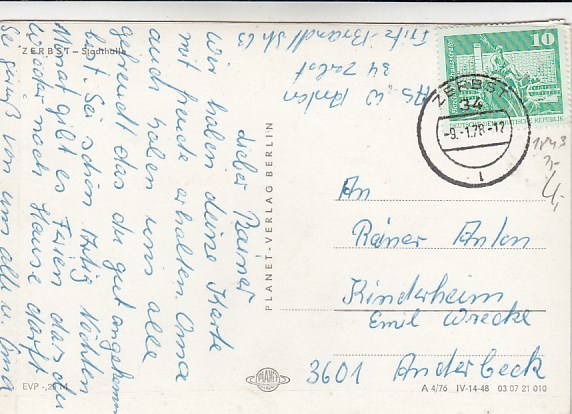 ZERBST – Stadthalle
Lieber Rainer
wir haben deine Karte
mit freude erhalten. Oma
auch haben uns alle
gefreudt das du gut angekommen
bist. Sei schön artig Nächsten
Monat gibt es Ferien das du
wieder nach Hause darfst
Sei gegrüßt von uns alle u. Oma
EVP -,20 M
Abs. W Anton
34 Zerbst
Fritz-Brandt Str 63
PLANET-VERLAG BERLIN
PLANET
10
DEUTSCHE DEMOKRATISCHE REPUBLIK
ZERBST
34
-9.-1.78-12
1
An
Rainer Anton
Kinderheim
Emil Wrecke
3601 Anderbeck
A 4/76 IV-14-48 03 07 21 010